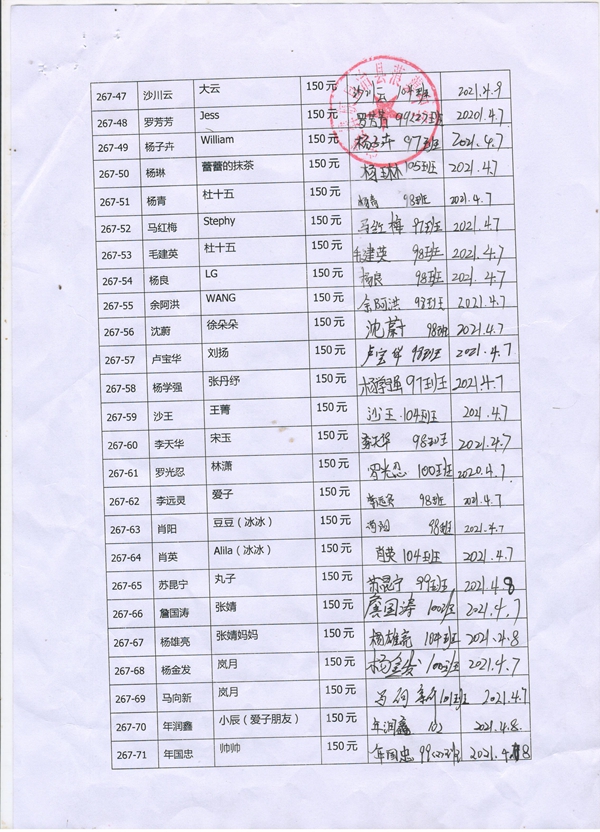 267-47 沙川云 大云 150元 沙川云 104班 2021.4.9
267-48 罗芳芳 Jess 150元 罗芳芳 99(2)班 2020.4.7
267-49 杨子卉 William 150元 杨子卉 97班 2021.4.7
267-50 杨琳 蕾蕾的抹茶 150元 杨琳 105班 2021.4.7
267-51 杨青 杜十五 150元 杨青 98班 2021.4.7
267-52 马红梅 Stephy 150元 马红梅 97班 2021.4.7
267-53 毛建英 杜十五 150元 毛建英 98班 2021.4.7
267-54 杨良 LG 150元 杨良 98班 2021.4.7
267-55 余阿洪 WANG 150元 余阿洪 98班 2021.4.7
267-56 沈蔚 徐朵朵 150元 沈蔚 98班 2021.4.7
267-57 卢宝华 刘扬 150元 卢宝华 98班 2021.4.7
267-58 杨学强 张丹纾 150元 杨学强 97班 2021.4.7
267-59 沙王 王菁 150元 沙王 104班 2021.4.7
267-60 李天华 宋玉 150元 李天华 98班 2021.4.7
267-61 罗光忍 林潇 150元 罗光忍 100班 2020.4.7
267-62 李远灵 爱子 150元 李远灵 98班 2021.4.7
267-63 肖阳 豆豆（冰冰） 150元 肖阳 98班 2021.4.7
267-64 肖英 Alila（冰冰） 150元 肖英 104班 2021.4.7
267-65 苏昆宁 丸子 150元 苏昆宁 99班 2021.4.8
267-66 詹国涛 张婧 150元 国涛 100班 2021.4.7
267-67 杨雄亮 张婧妈妈 150元 杨雄亮 104班 2021.4.8
267-68 杨金发 岚月 150元 杨金发 100班 2021.4.7
267-69 马向新 岚月 150元 马向新 101班 2021.4.7
267-70 年润鑫 小辰（爱子朋友） 150元 年润鑫 102 2021.4.8.
267-71 年国忠 帅帅 150元 年国忠 99(2)班 2021.4.8